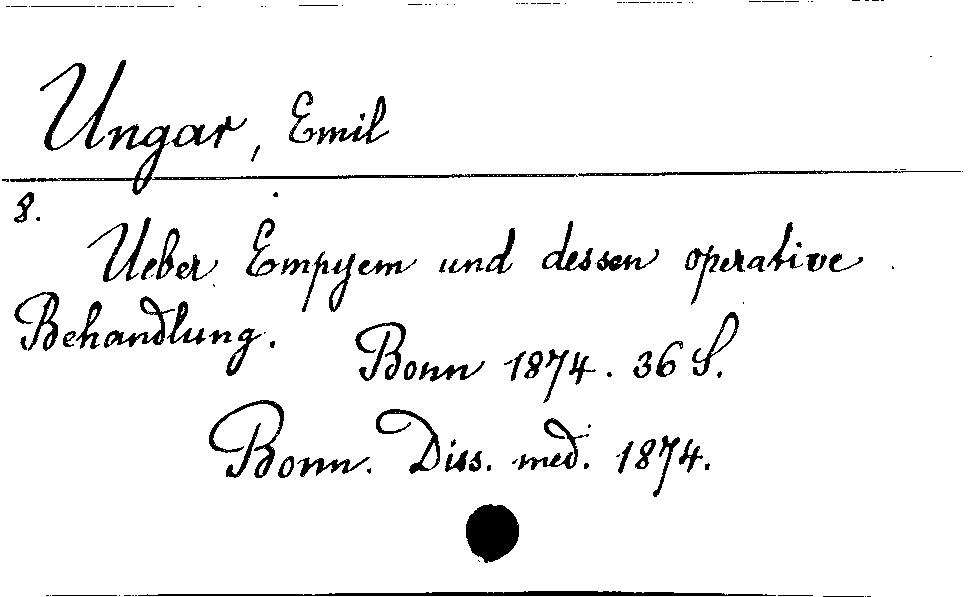 Ungar, Emil
8.
Ueber Empyem und dessen operative
Behandlung.
Bonn 1874. 36 S.
Bonn. Diss. med. 1874.